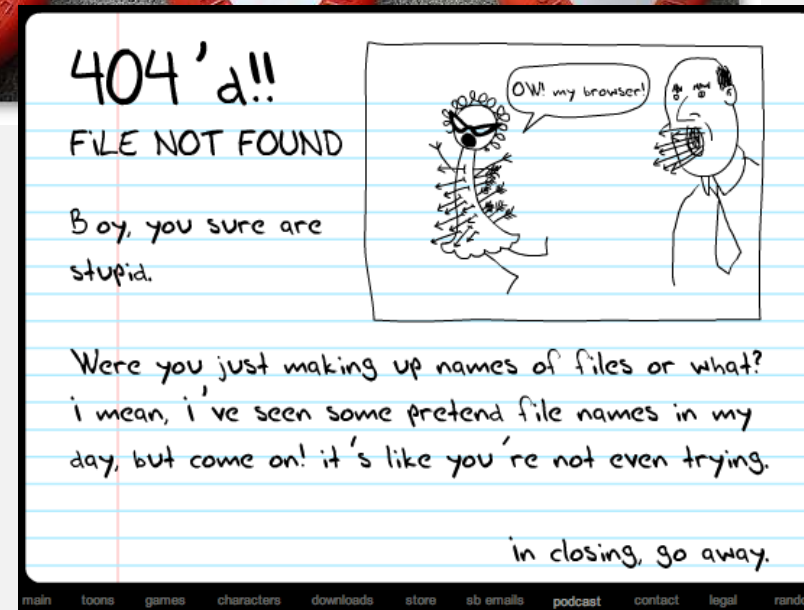 404'd!!
OW! my browser!
FiLE NOT FOUND
Boy, you sure are
stupid.
Were you just making up names of files or what?
i mean, i've seen some pretend file names in my
day, but come on! it's like you're not even trying.
in closing, go away.
main toons games characters downloads store sb emails podcast contact legal rando